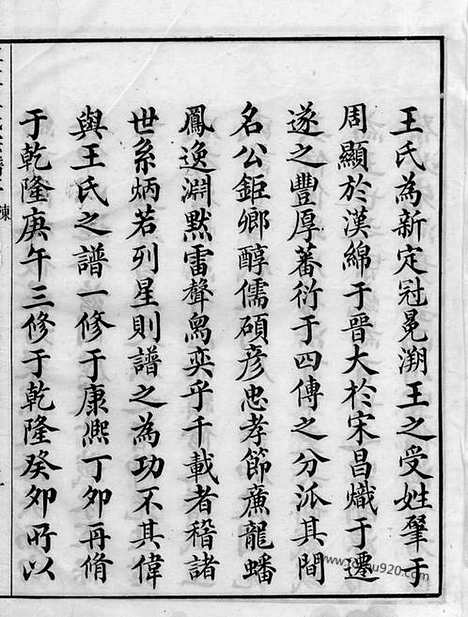 王氏為新定冠冕溯王之受姓肇于
周顯於漢綿于晉大於宋昌熾于遷
遂之豐厚蕃衍于四傳之分派其間
名公鉅卿醇儒碩彥忠孝節廉龍蟠
鳳逸淵默雷聲舄奕乎千載者稽諸
世系炳若列星則譜之為功不其偉
與王氏之譜一修于康熙丁卯再脩
于乾隆庚午三修于乾隆癸卯所以